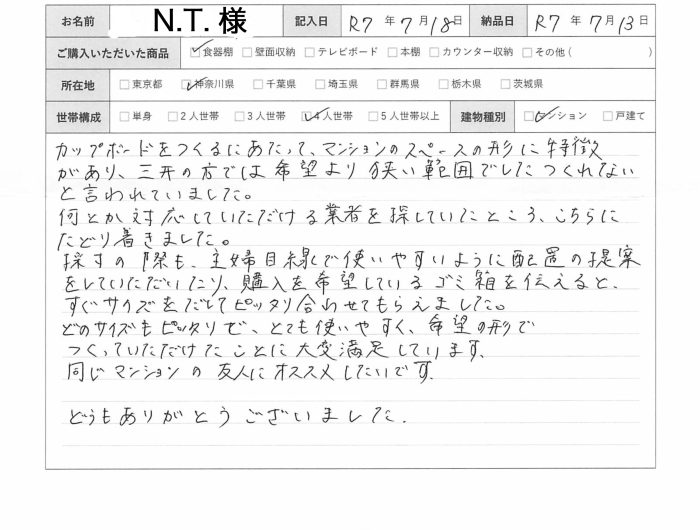 お名前 N.T. 様 記入日 R7 年 7 月 18 日 納品日 R7 年 7 月 13 日
ご購入いただいた商品 ☑食器棚 □壁面収納 □テレビボード □本棚 □カウンター収納 □その他 ( )
所在地 □東京都 ☑神奈川県 □千葉県 □埼玉県 □群馬県 □栃木県 □茨城県
世帯構成 □単身 □2人世帯 □3人世帯 ☑4人世帯 □5人世帯以上 建物種別 ☑マンション □戸建て
カップボードをつくるにあたって、マンションのスペースの形に特徴
があり、三井の方では希望より狭い範囲でしたつくれない
と言われていました。
何とか対応していただける業者を探していたところ、こちらに
たどり着きました。
採寸の際も、主婦目線で使いやすいように配置の提案
をしていただいたり、購入を希望しているゴミ箱を伝えると、
すぐサイズをだしてピッタリ合わせてもらえました。
どのサイズもピッタリで、とても使いやすく、希望の形で
つくっていただけたことに大変満足しています。
同じマンションの友人にオススメしたいです。
どうもありがとうございました。